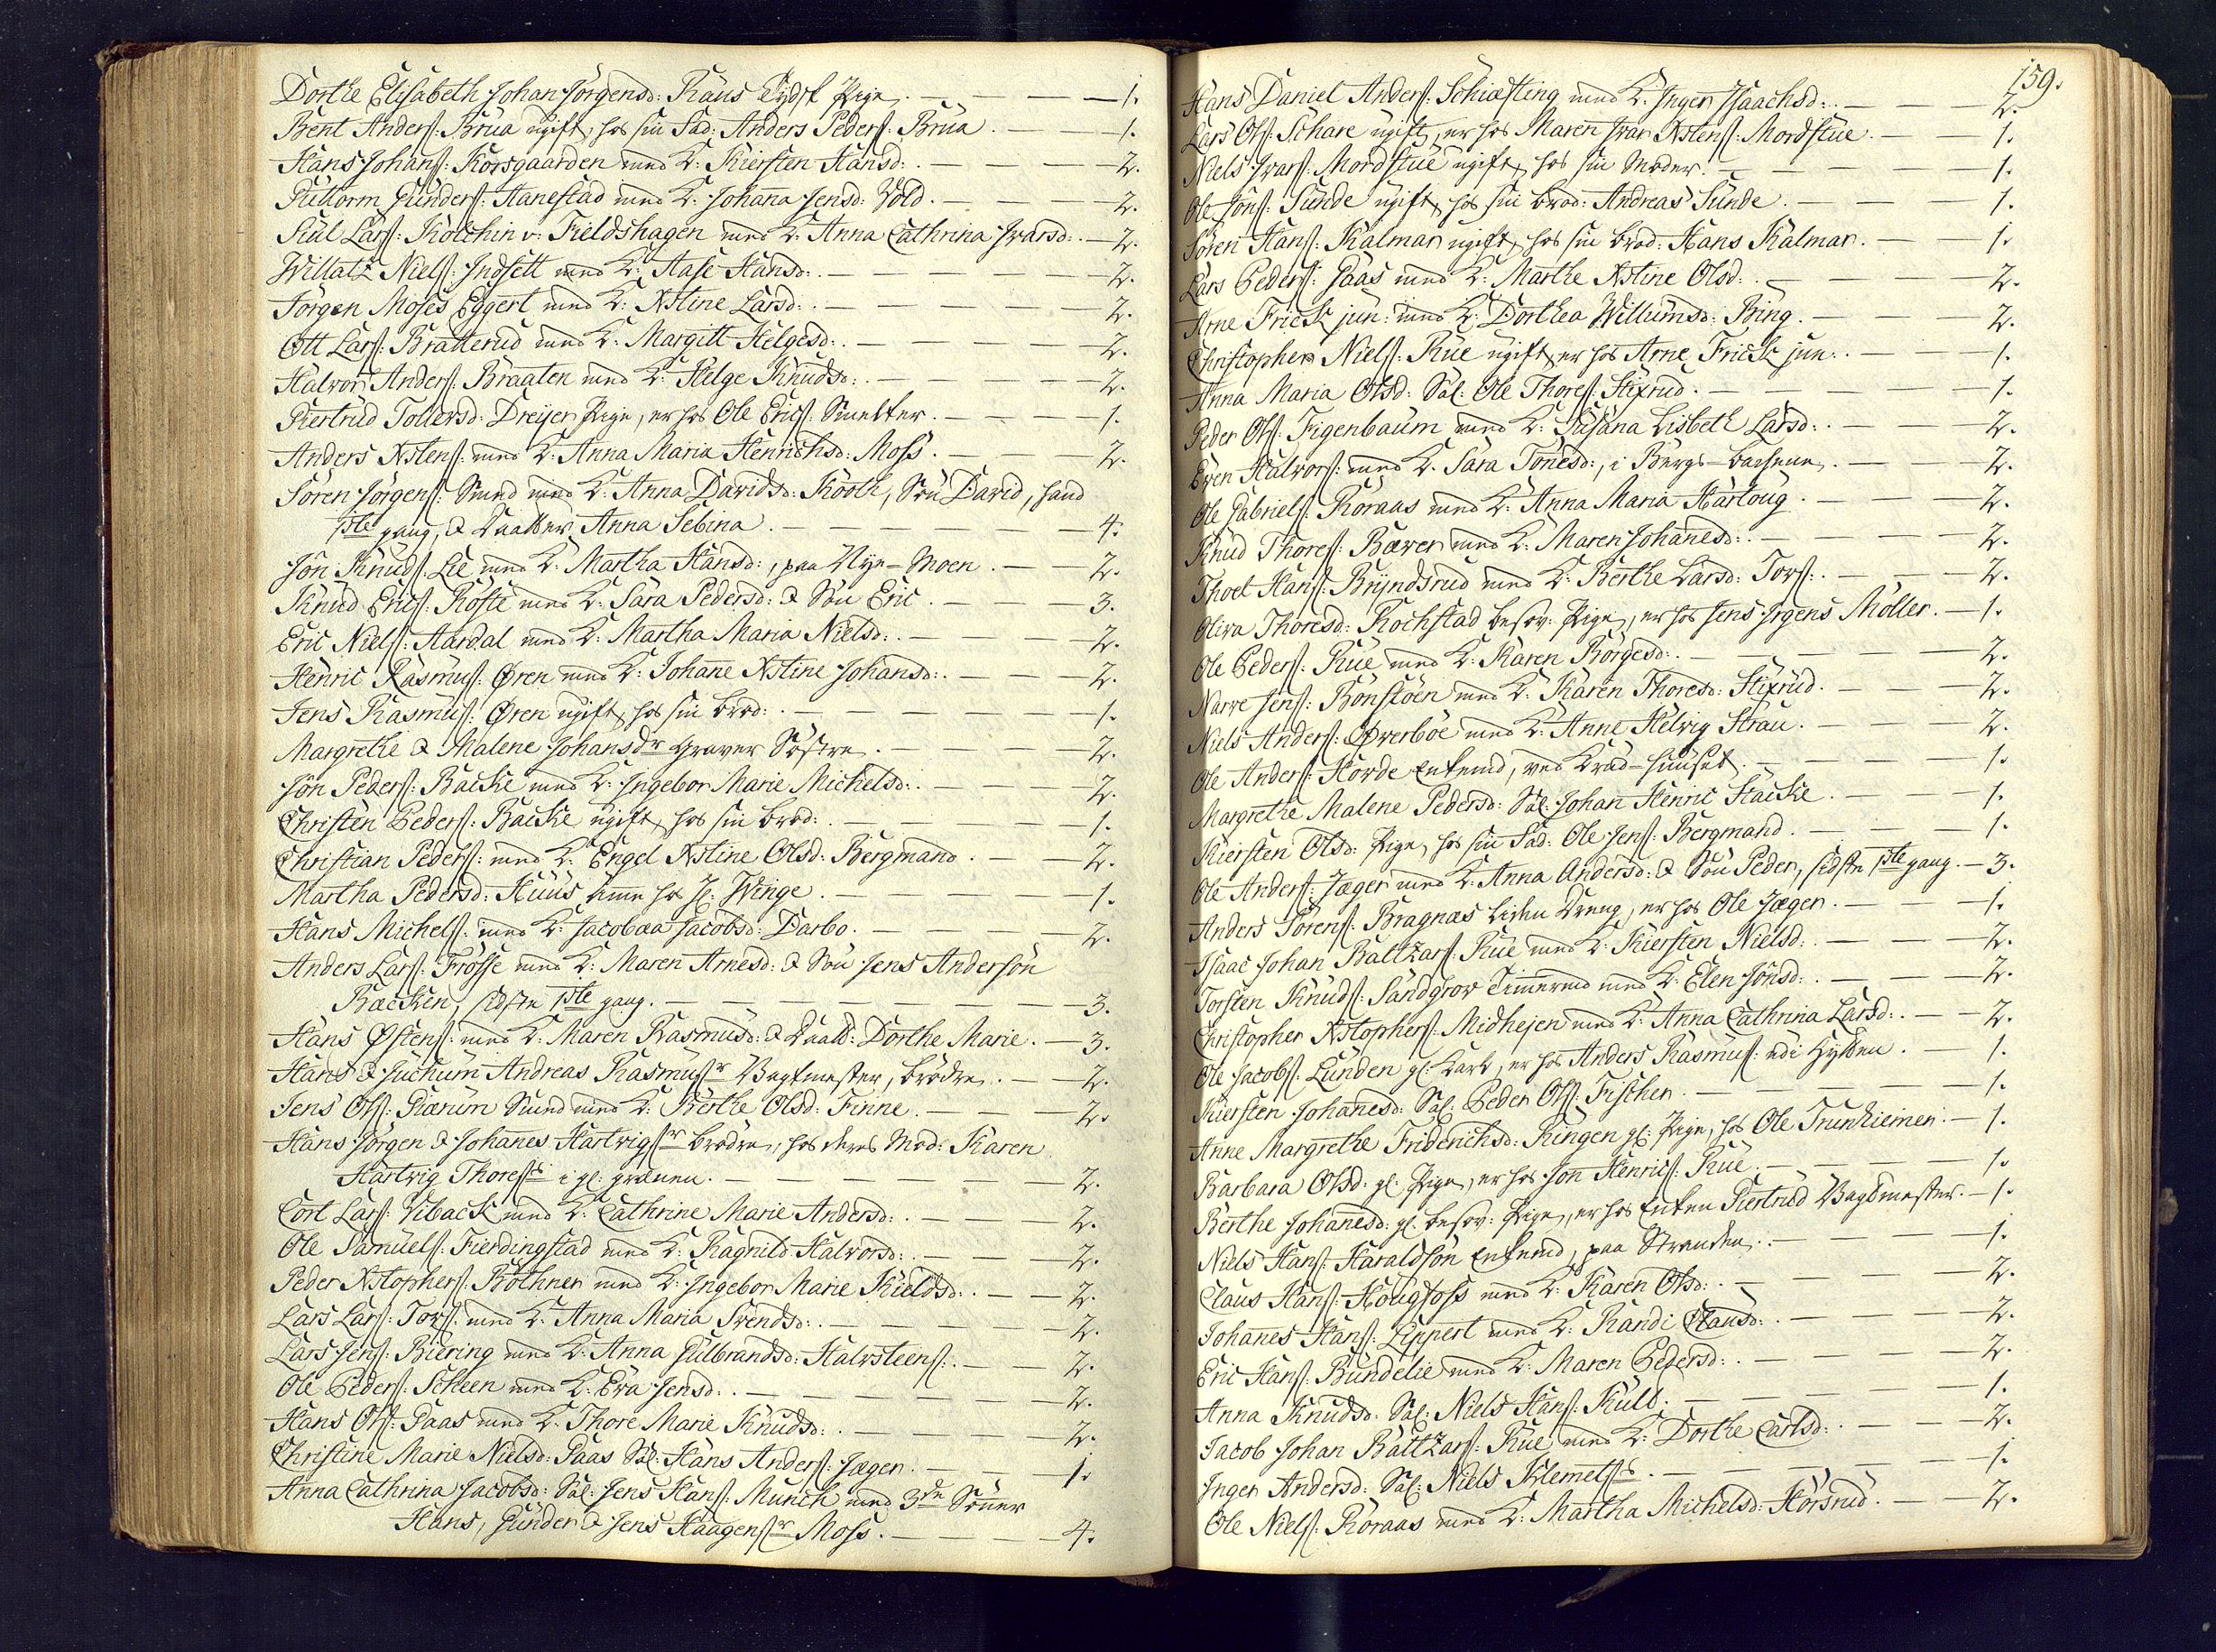 Dorthe Elisabeth Johan Jörgensd: Raus Tydsk Pige. — 1.
Bent Anders: Brua ugift, hos sin Fad: Anders Peders: Brua. — 1.
Hans Johans: Korsgaarden med K: Kiersten Hansd: — 2.
Guttorm Gunders: Hanestad med K: Johanna Jensd: Vold. — 2.
Lars: Kölchin v: Fieldshagen med K: Anna Cathrina Ivarsd: — 2.
Willatz Niels: Indsett med K: Aase Hansd: — 2.
Jörgen Moses Eggert med K: Xstine Larsd: — 2.
Ott Lars: Bratterud med K: Margitt Helgesd: — 2.
Halvor Anders: Braaten med K: Helge Knudsd: — 2.
Giertrud Tollersd: Dreyer Pige, er hos Ole Erics: Smelter. — 1.
Anders Xstens: med K: Anna Maria Henrichsd: Moss. — 2.
Sören Jörgens: Smed med K: Anna Davidsd: Koolt, Sön David, sand
1ste gang, & Daatter Anna Sebina. — 4.
Jön Knuds: Lie med K: Martha Hansd:, paa Nye-Moen. — 2.
Knud Erics: Köste med K: Sara Pedersd: & Sön Eric. — 3.
Eric Niels: Aardal med K: Martha Maria Nielsd: — 2.
Henric Rasmus: Øren med K: Johanne Xstine Johansd: — 2.
Jens Rasmus: Øren ugift, hos sin brod: — 1.
Margrethe & Malene Johansdr Graver Söstre. — 2.
Jön Peders: Backe med K: Ingebor Marie Michelsd: — 2.
Christen Peders: Backe ugift, hos sin brod: — 1.
Christian Peders: med K: Engel Xstine Olsd: Bergmand. — 2.
Martha Pedersd: Huus Amme hos H: Winge. — 1.
Hans Michels: med K: Jacobæa Jacobsd: Darbo. — 2.
Anders Lars: Frösse med K: Maren Arnesd: & Sön Jens Andersön
Backen, sidste 1ste gang. — 3.
Hans Østens: med K: Maren Rasmusd: & Daatt: Dorthe Marie. — 3.
Hans & Juchum Andreas Rasmusr Vagtmester, brödre. — 2.
Jens Ols: Giærum Smed med K: Berthe Olsd: Finne. — 2.
Hans Jörgen & Johannes Hartvigsr brödre, hos deres Mod: Karen
Hartvig Thoress i gl: grænen. — 2.
Cort Lars: Viback med K: Cathrine Marie Andersd: — 2.
Ole Samuels: Fierdingstad med K: Ragnild Halvorsd: — 2.
Peder Xstophers: Böthner med K: Ingebor Marie Kieldsd: — 2.
Lars Lars: Tors: med K: Anna Maria Svendsd: — 2.
Lars Jens: Biering med K: Anna Gulbrandsd: Halvsteens: — 2.
Ole Peders: Scheen med K: Eva Jensd: — 2.
Hans Ols: Paas med K: Thore Marie Knudsd: — 2.
Christine Marie Nielsd: Paas Sal: Hans Anders: Jæger. — 1.
Anna Cathrina Jacobsd: Sal: Jens Hans: Munch med 3de Sönner
Hans, Gunder & Jens Haagensr Moss. — 4.
159.
Hans Daniel Anders: Schiøtting med K: Inger Isaachsd: — 2.
Lars Ols: Schare ugift, er hos Maren Ivar Xstens: Mordstue. — 1.
Niels Ivars: Mordstue ugift, hos sin Moder. — 1.
Ole Jöns: Sunde ugift, hos sin brod: Andreas Sunde. — 1.
Sören Hans: Kalmar ugift, hos sin brod: Hans Kalmar. — 1.
Lars Peders: Paas med K: Marthe Xstine Olsd: — 2.
Arne Frick jun: med K: Dorthea Willumsd: Bring. — 2.
Christopher Niels: Rue ugift, er hos Arne Frick jun: — 1.
Anna Maria Olsd: Sal: Ole Thores: Stixrud. — 1.
Peder Ols: Figenbaum med K: Susana Lisbeth Larsd: — 2.
Even Halvors: med K: Sara Tönesd:, i Bergs-bachene. — 2.
Ole Gabriels: Röraas med K: Anna Maria Hartoug. — 2.
Knud Thores: Bæver med K: Maren Johannesd: — 2.
Thoel Hans: Bryndsrud med K: Berthe Larsd: Tors: — 2.
Oliva Thoresd: Rochstad besov: Pige, er hos Jens Irgens Möller. — 1.
Ole Peders: Rue med K: Karen Börgesd: — 2.
Narve Jens: Bönstöen med K: Karen Thoresd: Stixrud. — 2.
Niels Anders: Øverböe med K: Anne Helvig Strau. — 2.
Ole Anders: Horde Enkemd, ved Krud-huuset. — 1.
Margrethe Malene Pedersd: Sal: Johan Henric Hacke. — 1.
Kiersten Olsd: Pige, hos sin Fad: Ole Jens: Bergmand. — 1.
Ole Anders: Jæger med K: Anna Andersd: & Sön Peder, sidste 1ste gang. — 3.
Anders Sörens: Bragnæs liden Dreng, er hos Ole Jæger. — 1.
Isaac Johan Baltzars: Rue med K: Kiersten Nielsd: — 2.
Torsten Knuds: Sandgrov Timmermd med K: Elen Jönsd: — 2.
Christopher Xstophers: Midhejen med K: Anna Cathrina Larsd: — 2.
Ole Jacobs: Lunden gl: Karl, er hos Anders Rasmus: ved Hytten. — 1.
Kiersten Johannesd: Sal: Peder Ols: Fischer. — 1.
Anne Margrethe Friderichsd: Ringen gl: Pige, hos Ole Trunkiemen. — 1.
Barbara Olsd: gl: Pige, er hos Jon Henrics: Rue. — 1.
Berthe Johannesd: gl: besov: Pige, er hos Enken Giertrud Vagtmester. — 1.
Niels Hans: Haraldsön Enkemd, paa Stranden. — 1.
Claus Hans: Hougfoss med K: Karen Olsd: — 2.
Johannes Hans: Lippert med K: Randi Clausd: — 2.
Eric Hans: Bundelie med K: Maren Pedersd: — 2.
Anna Knudsd: Sal: Niels Hans: Kuld. — 1.
Jacob Johan Baltzars: Rue med K: Dorthe Carlsd: — 2.
Inger Andersd: Sal: Niels Klemetss. — 1.
Ole Niels: Röraas med K: Martha Michelsd: Hörsrud. — 2.